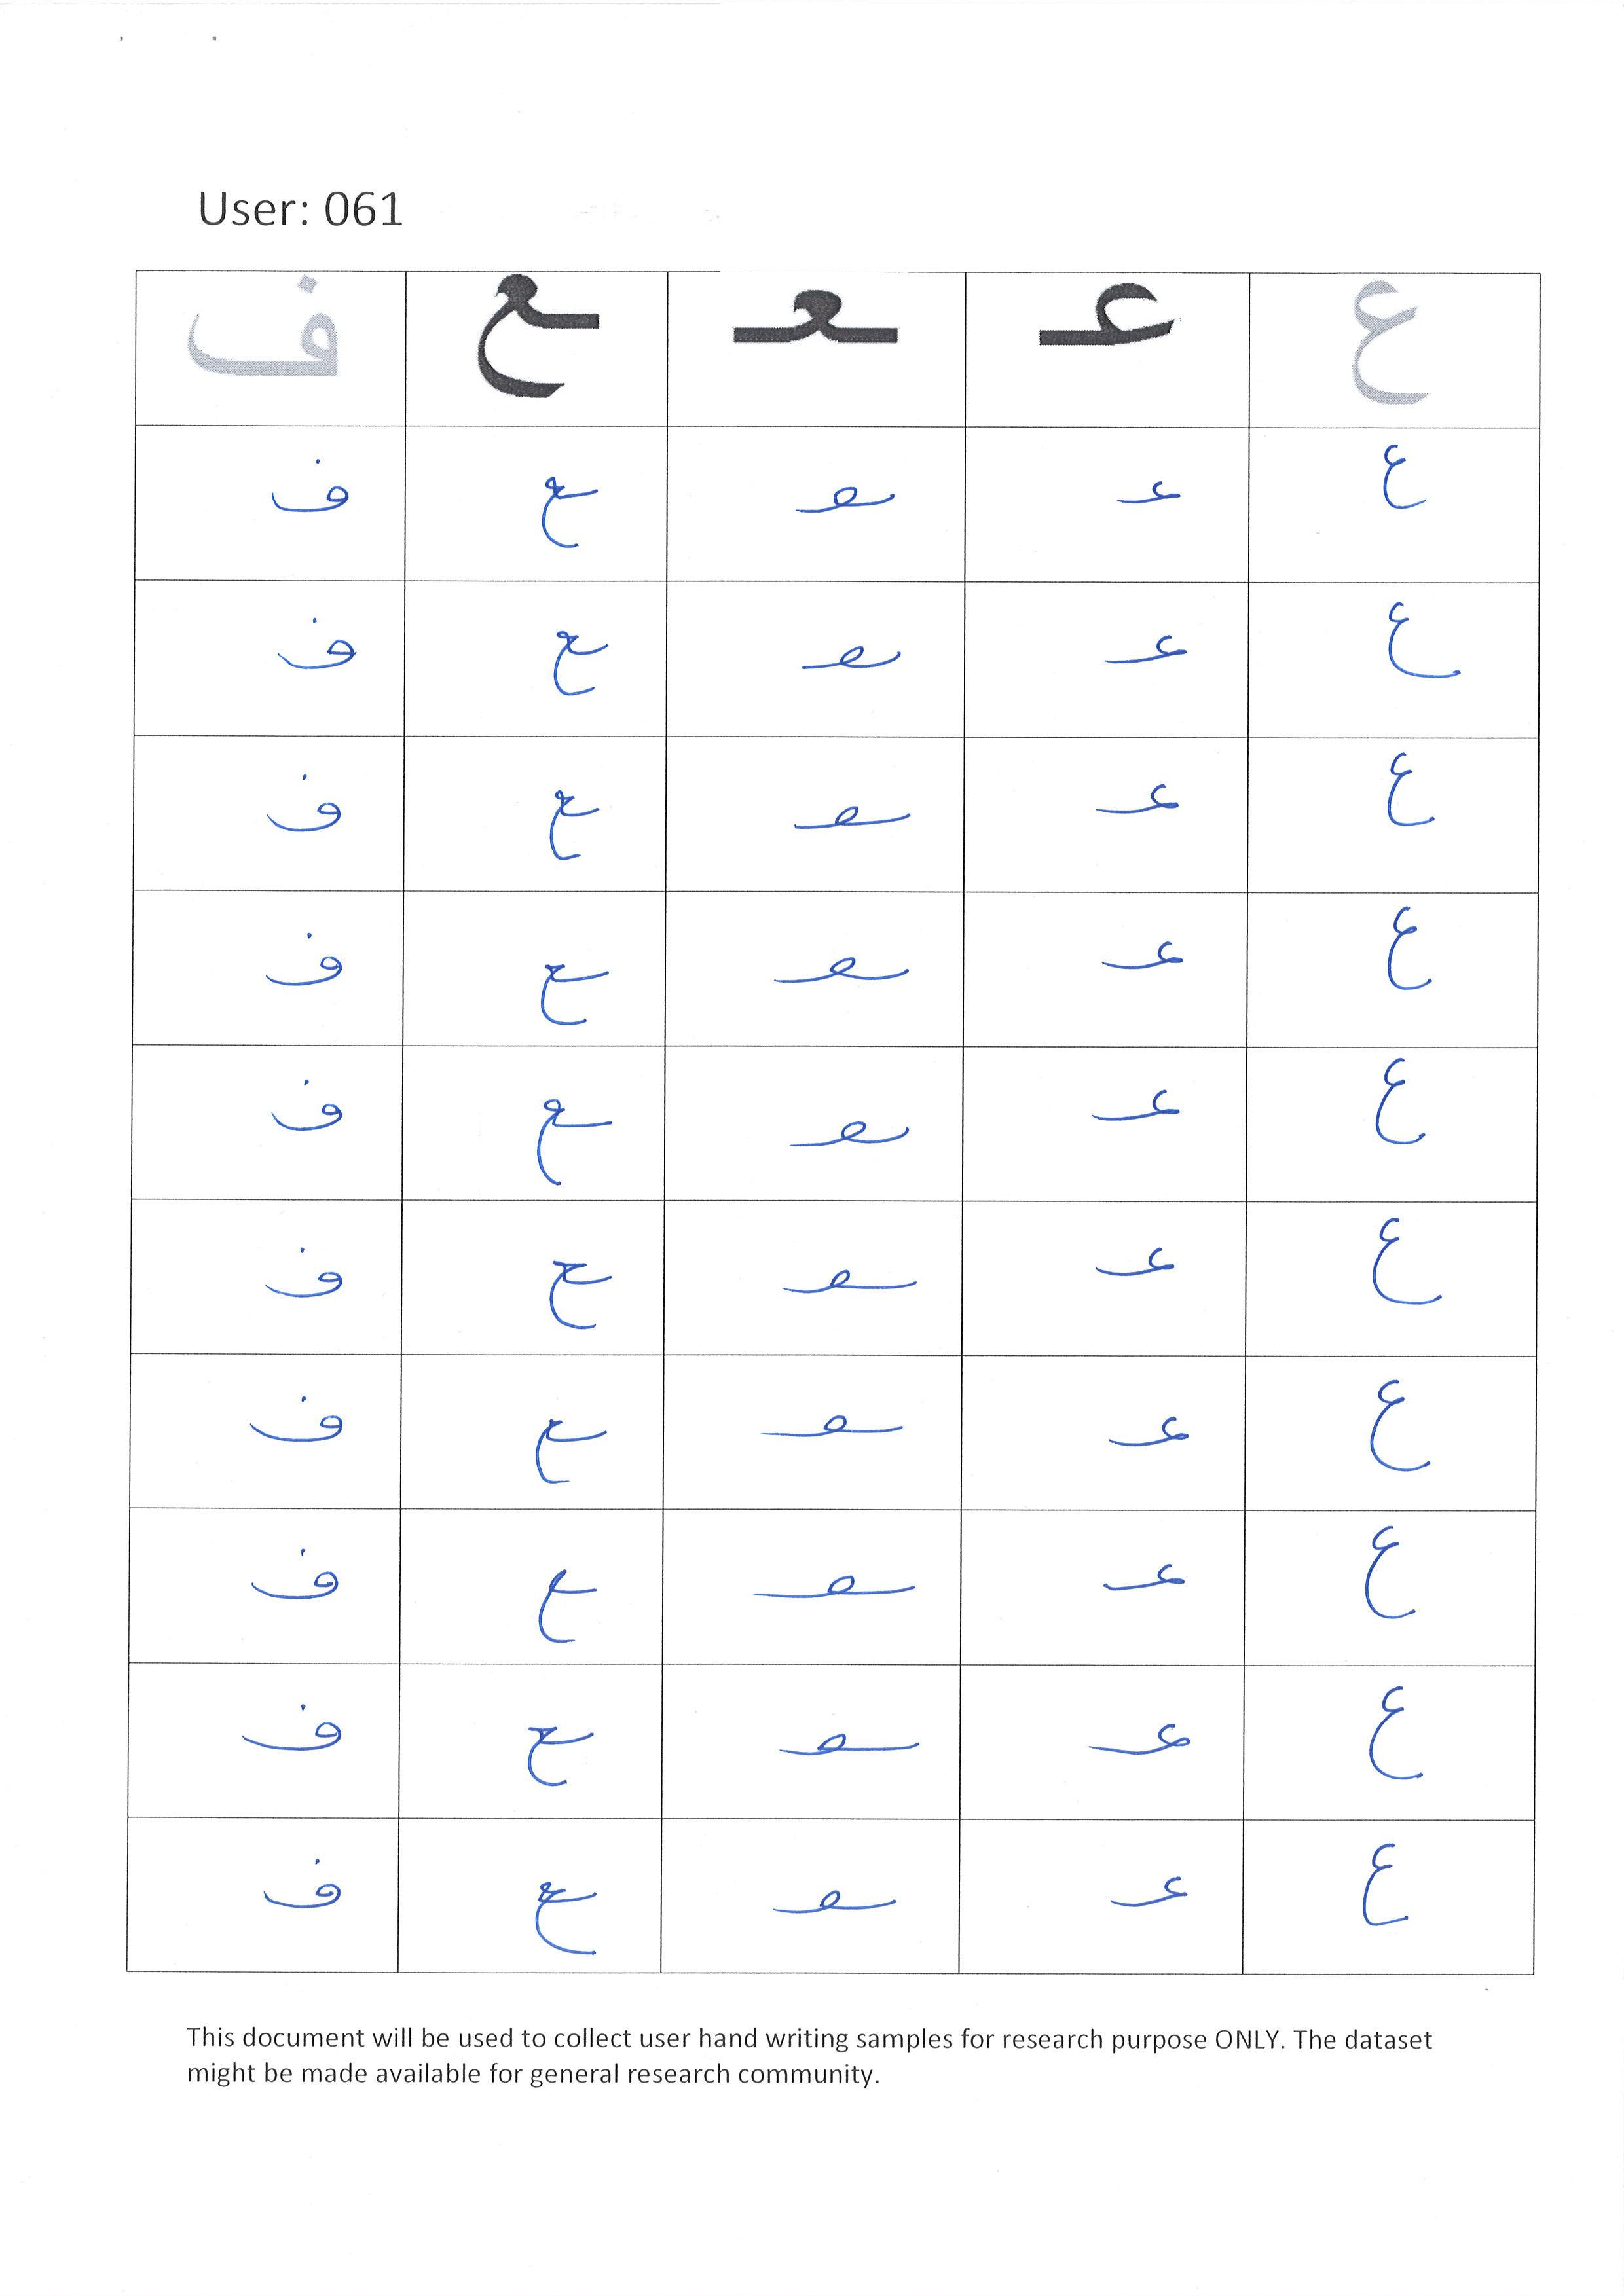 User: 061
ع عـ ـعـ ـع ف
ع عـ ـعـ ـع ف
ع عـ ـعـ ـع ف
ع عـ ـعـ ـع ف
ع عـ ـعـ ـع ف
ع عـ ـعـ ـع ف
ع عـ ـعـ ـع ف
ع عـ ـعـ ـع ف
ع عـ ـعـ ـع ف
ع عـ ـعـ ـع ف
ع عـ ـعـ ـع ف
This document will be used to collect user hand writing samples for research purpose ONLY. The dataset
might be made available for general research community.